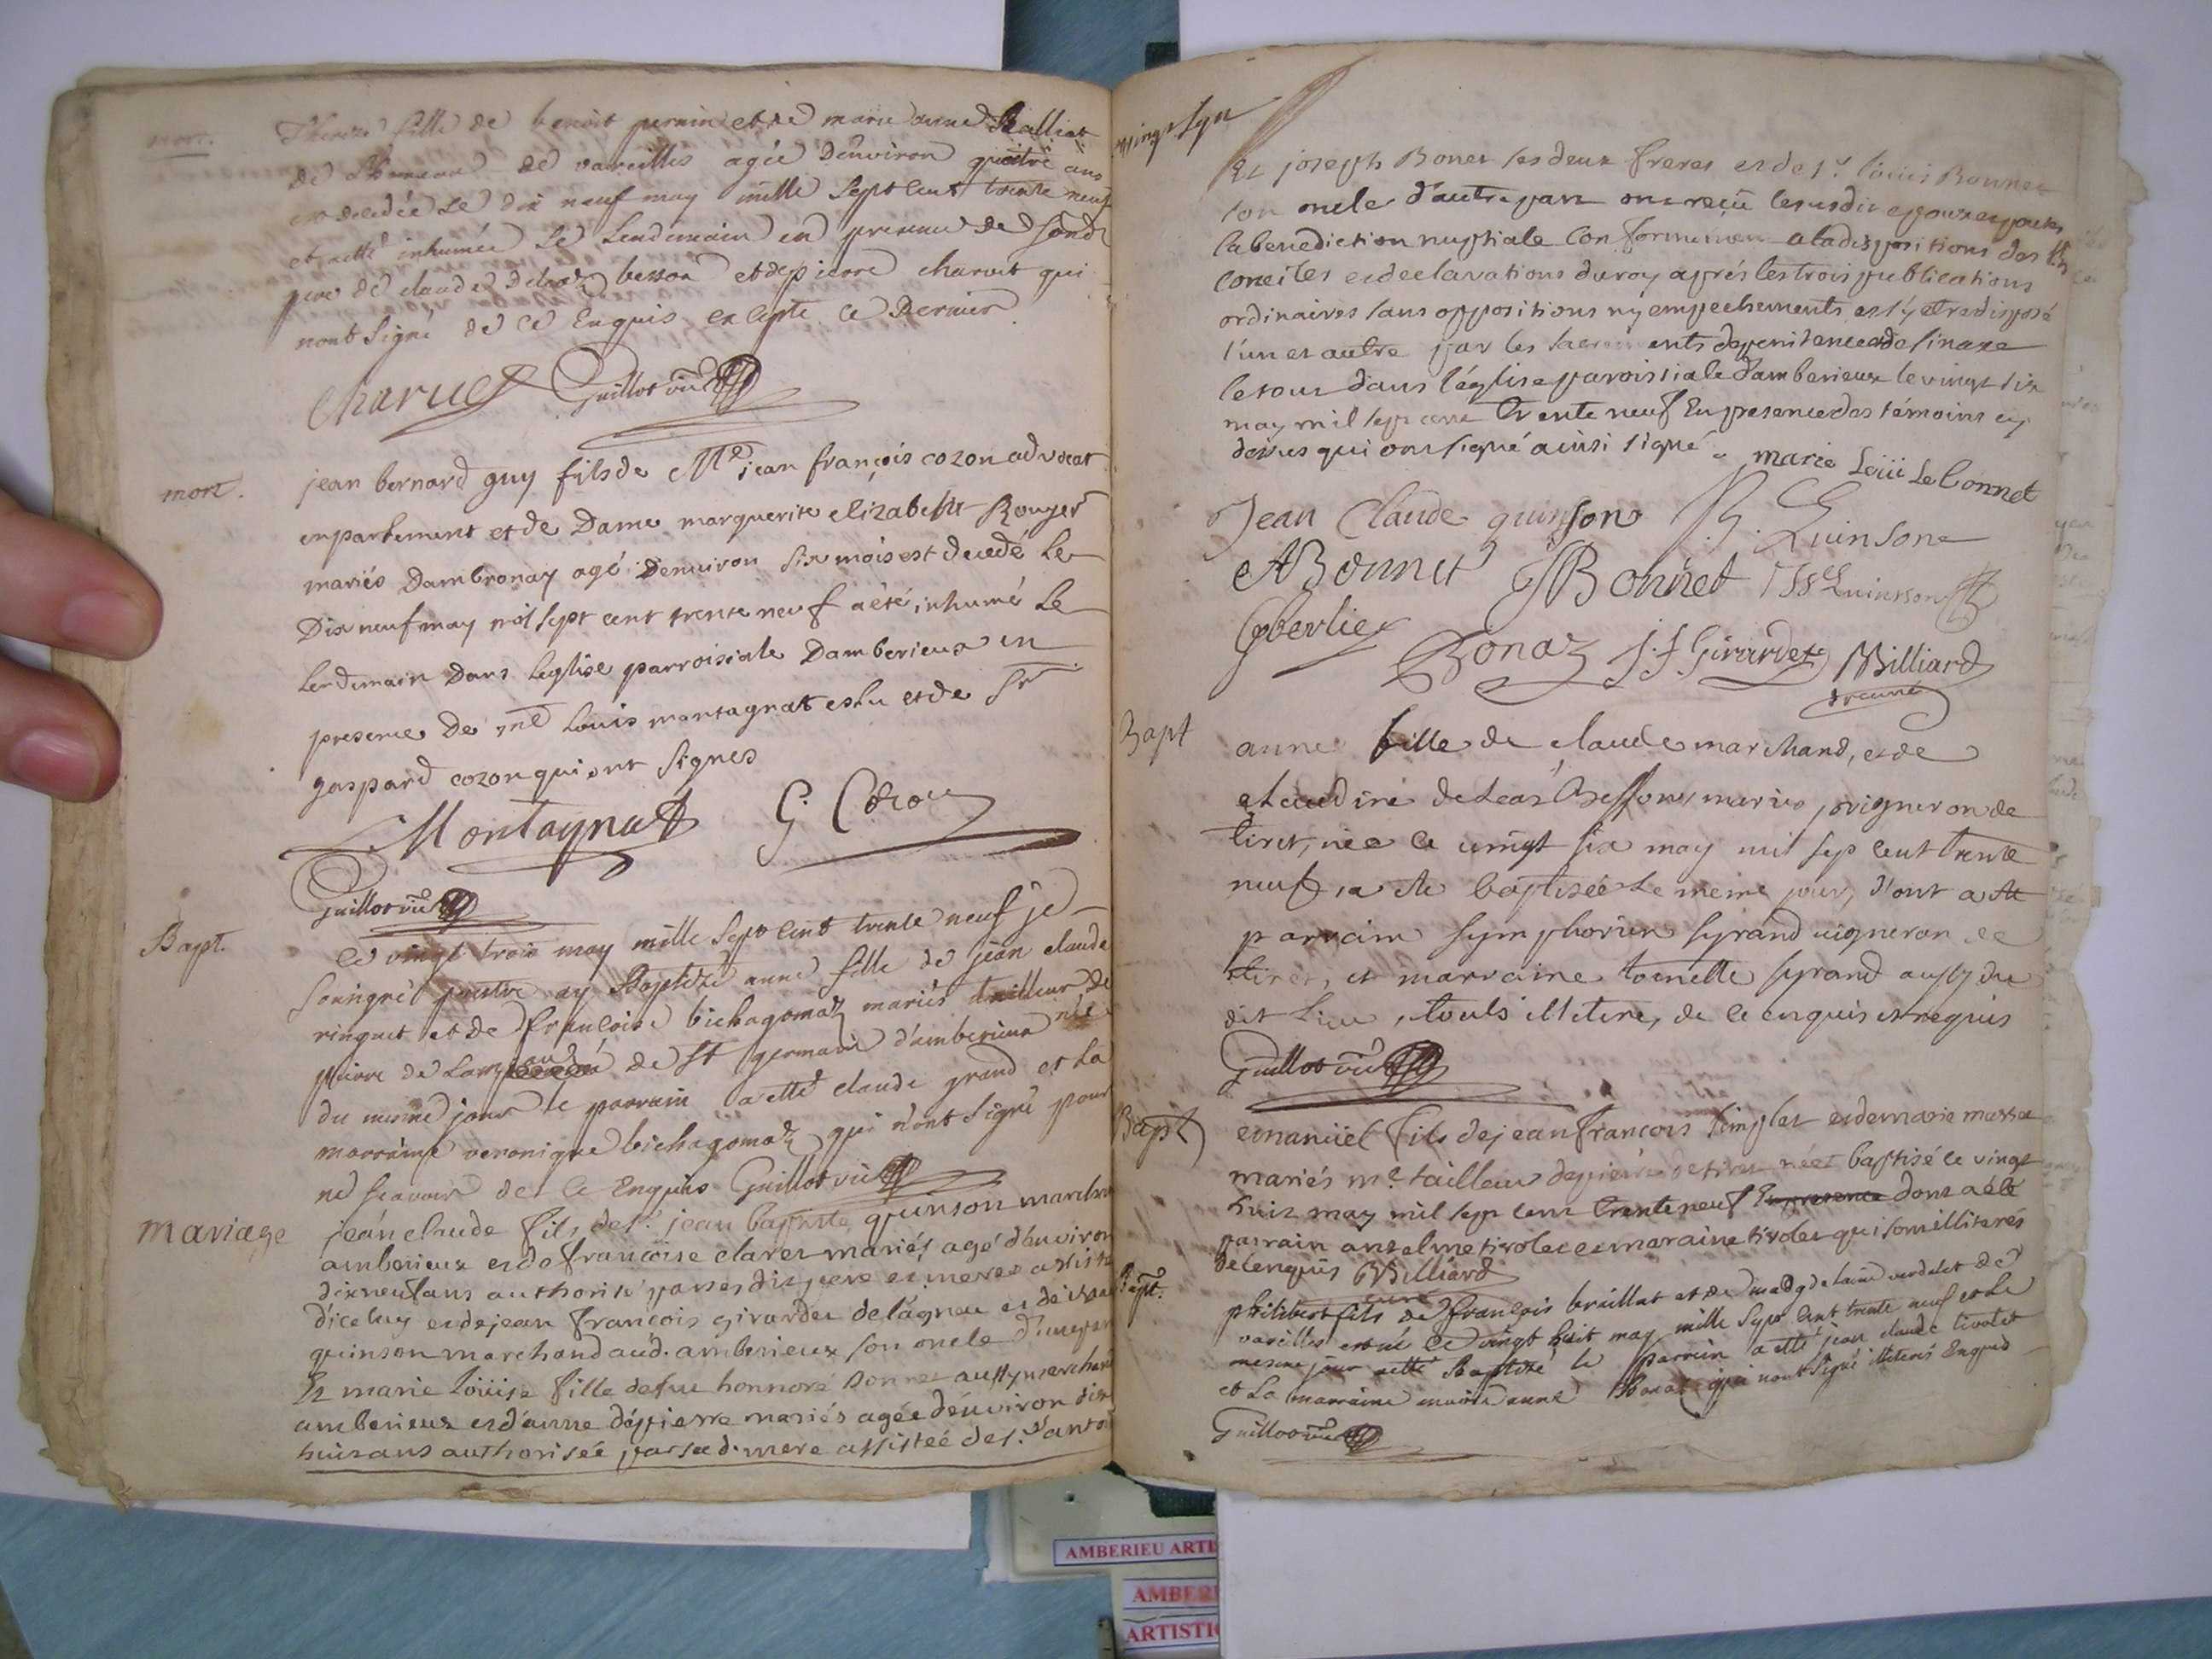 mort.
fille de benoit perrin et de marie anne Balliat
de vareilles agée d'environ quatre ans
decedée le dix neuf may mille sept cent trente neuf
et a etté inhumée le lendemain en presence de
pere de claude besson et de pierre charvet qui
nont signé de ce enquis excepte ce Dernier
Charvet Guillot
mort.
jean bernard guy fils de Me jean françois cozon advocat
en parlement et de Dame marguerite elizabeth Rouyer
mariés Dambronay agé Denviron six mois est decedé le
Dix neuf may mil sept cent trente neuf a été inhumé le
lendemain Dans leglise parroissiale Damberieux en
presence De me Louis montagnat eslu et de sr
gaspard cozon qui ont signes
Montagnat G. Cozon
Guillot
Bapt.
Ce vingt trois may mille sept cent trente neuf je
soussigné ay Baptizé anne fille de jean claude
ringuet et de françoise bichagomaz mariés tailleur de
pierre de de st germain d'amberieux née
du mesme jour le parrain a etté claude grand et la
marraine veronique bichagomaz qui n'ont signé pour
ne scavoir de ce enquis Guillot
mariage
jean claude fils de sr. jean baptiste quinson march
amberieux et de francoise claret mariés agé d'environ
dixneuf ans authorisé
d'iceluy et de jean francois girardet de lagneu et de
quinson marchand aud. amberieux son oncle d'une part
Et marie Loüise fille defeu honnoré bonnet aussy marchand
amberieux et d'anne dépierre mariés agée d'environ dix
huit ans authorisée par sad. mere assistée de sr.
Et joseph Bonet ses deux freres et de sr. loüis Bonnet
son oncle d'autre part ont reçü
la benediction nuptiale Conformement a la dispositions des
conciles et declarations du roy aprés les trois publications
ordinaires sans oppositions ny empechements et s'y etre disposé
l'un et autre par les sacrements de penitence et de sinaxe
le tout dans l'église paroissiale d'amberieux le vingt six
may mil sept cent trente neuf En presence des témoins cy
dessus qui ont signé ainsi signé. marie Loüise bonnet
Jean Claude quinson Quinson
ABonnet JBonnet Quinson
Gberlie Bonaz J. F Girardet Billiard
Bapt
anne fille de claude marchand, et de
claudine besson mariés vigneron de
tiret, née le vingt six may mil sept cent trente
neuf, a ete baptisée le meme jour, dont a ete
parrain symphorien syrand vigneron de
tiret, et marraine toinette syrand aussy du
dit lieu, touts illiterés, de ce enquis et requis
Guillot
Bapt
emanüel fils de jean francois simplet et de marie
mariés me. tailleur de pierre de tiret né et baptisé le vingt
huit may mil sept cent trente neuf En presence dont a été
parrain anzelme tivolet et maraine tivolet qui sont illiterés
de ce enquis Billiard
curé
Bapt.
philibert fils de françois braillat et de madgdelaine verdelet de
vareilles est né le vingt huit may mille sept cent trente neuf et le
mesme jour a etté Baptizé le parrain a etté jean claude tivolet
et la marraine marie anne Bonaz qui nont signé illiterés Enquis
Guillot
AMBERIEU ARTI
AMBER
ARTISTI